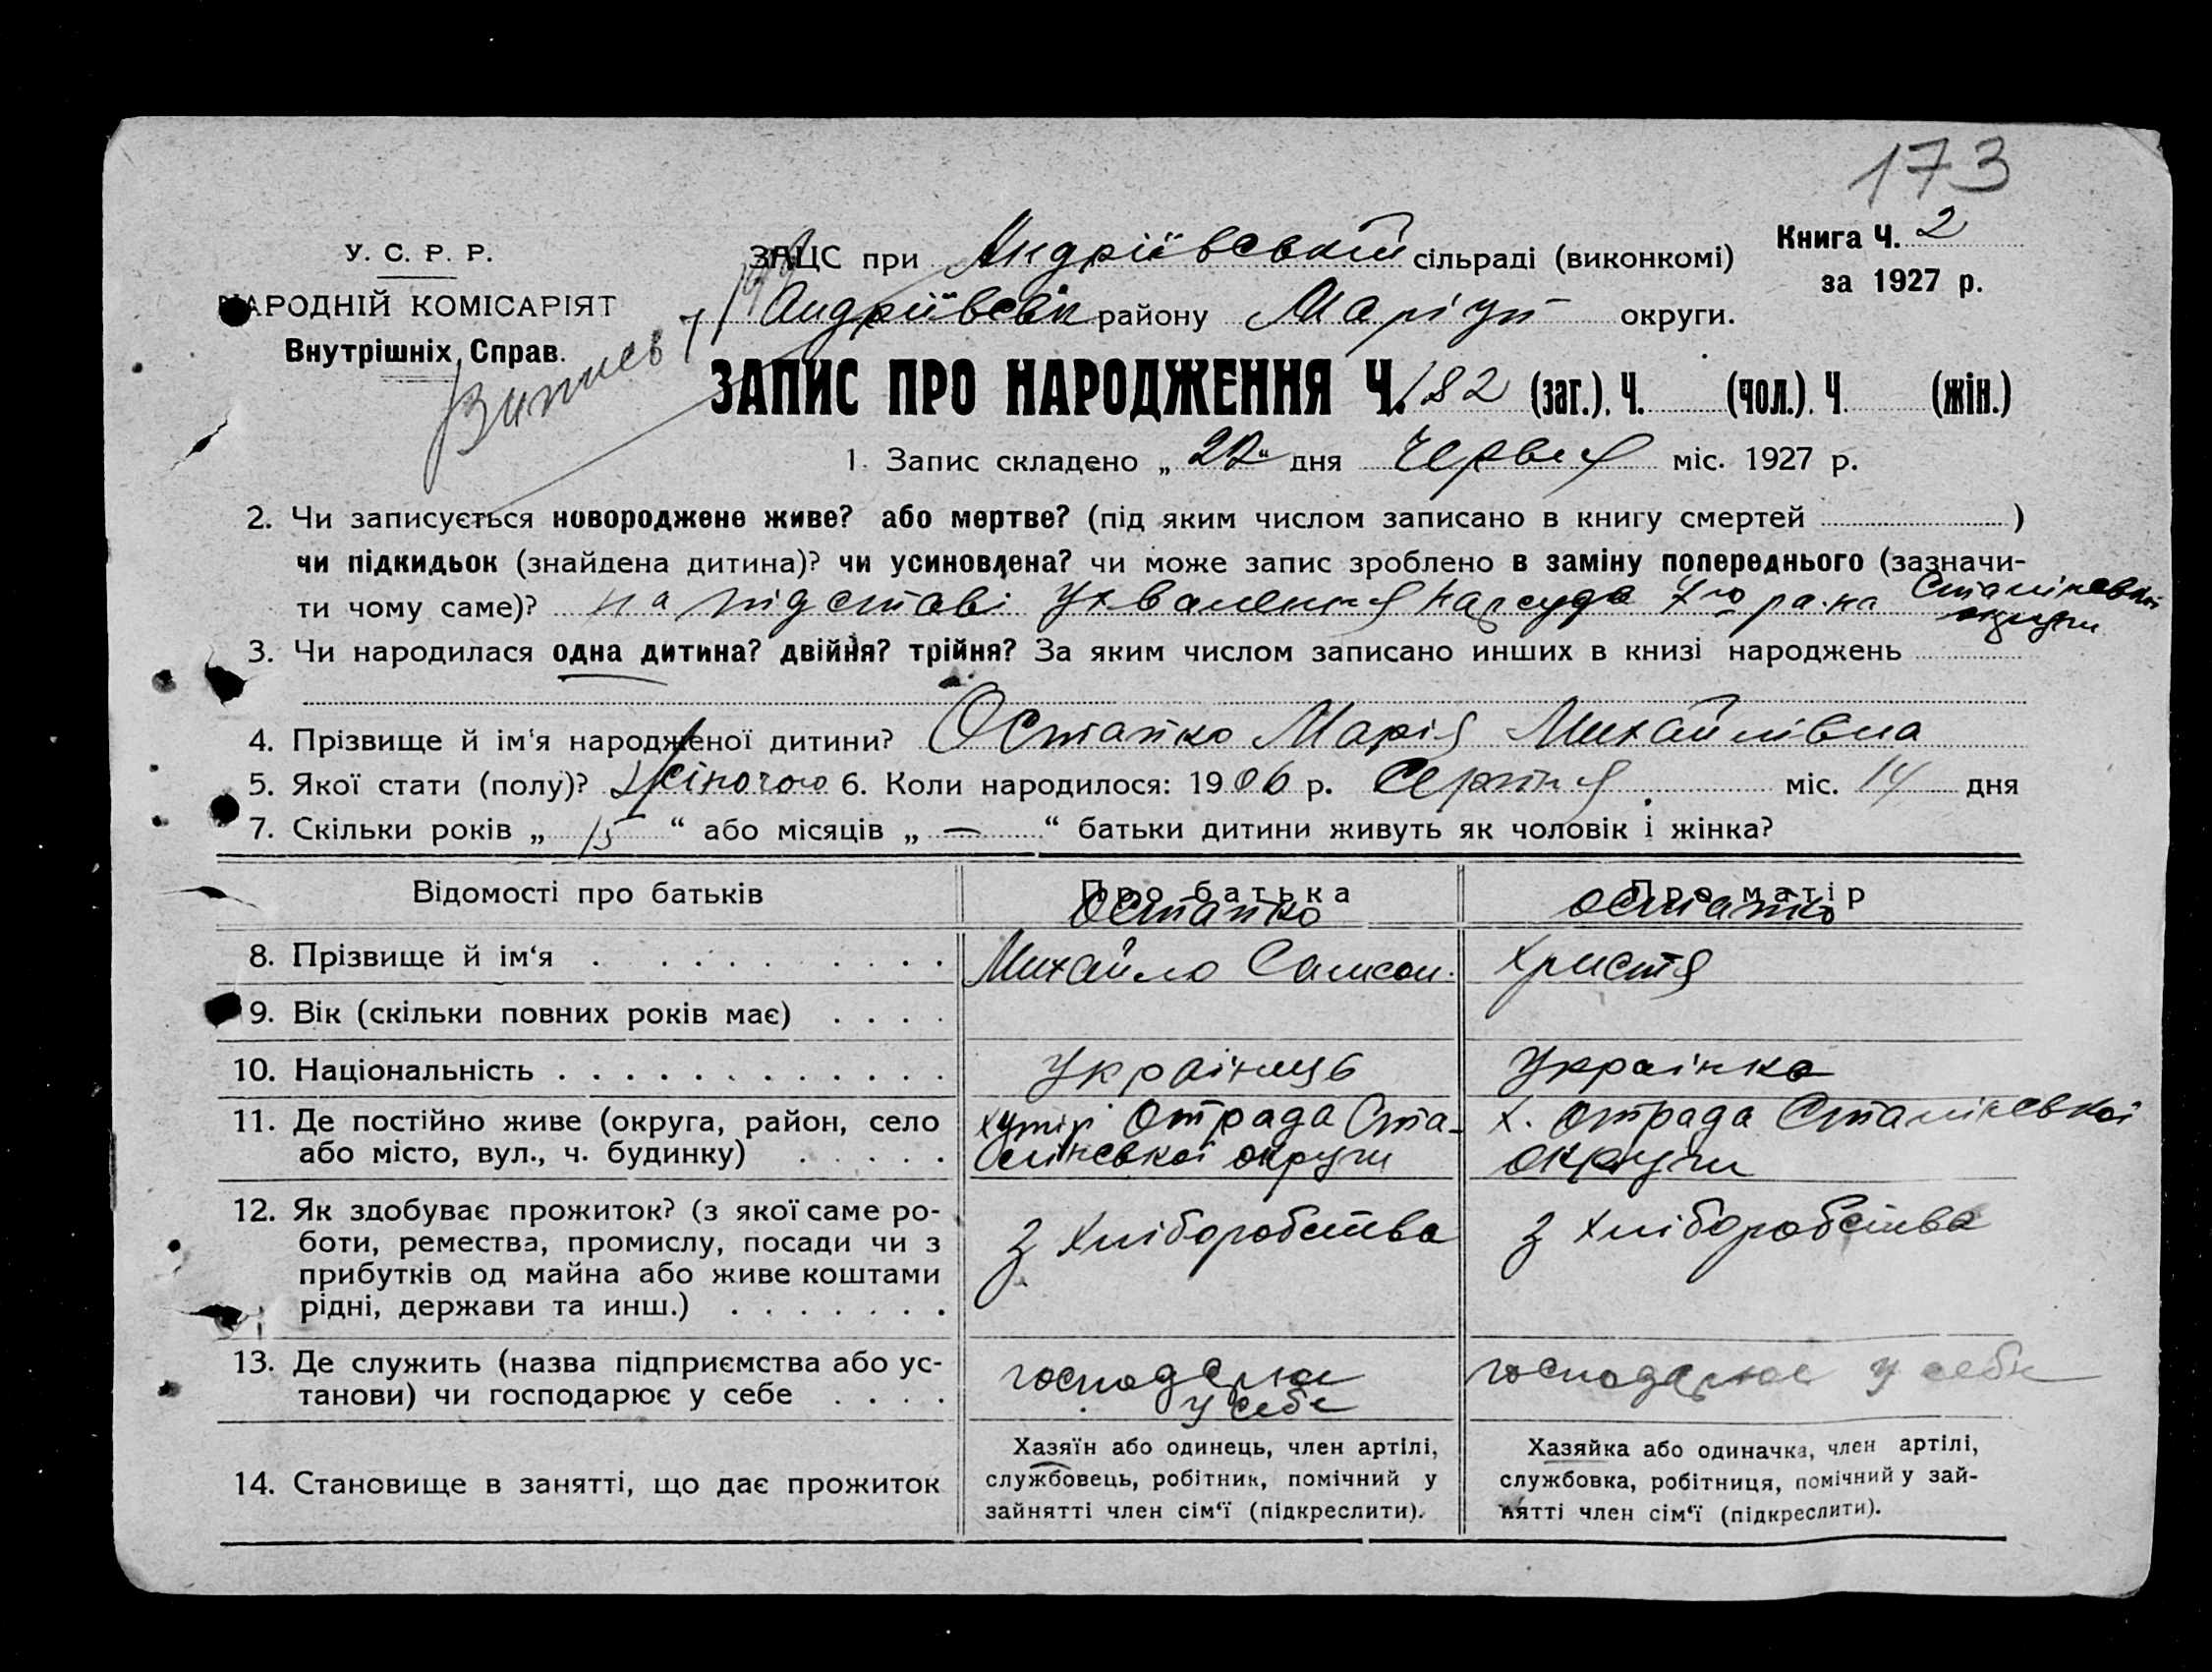 173
У. С. Р. Р.
НАРОДНІЙ КОМІСАРІЯТ
Внутрішніх Справ.
ЗАЦС при Андріївській сільраді (виконкомі)
Андріївськ району Маріуп округи.
Книга Ч. 2
за 1927 р.
ЗАПИС ПРО НАРОДЖЕННЯ Ч. 182 (заг.). Ч. (чол.). Ч. (жін.)
1. Запис складено „ 22 “ дня Червня міс. 1927 р.
2. Чи записується новороджене живе? або мертве? (під яким числом записано в книгу смертей )
чи підкидьок (знайдена дитина)? чи усиновлена? чи може запис зроблено в заміну попереднього (зазначи-
ти чому саме)? на підставі ухвалення нарсуда 7го ра-на Сталінської
округи
3. Чи народилася одна дитина? двійня? трійня? За яким числом записано инших в книзі народжень
4. Прізвище й ім'я народженої дитини? Остапко Марія Михайлівна
5. Якої стати (полу)? жіночою 6. Коли народилося: 1906 р. Серпня міс. 14 дня
7. Скільки років „ 15 “ або місяців „ — “ батьки дитини живуть як чоловік і жінка?
Відомості про батьків Про батька Про матір
Остапко Остапко
8. Прізвище й ім‘я Михайло Самсон. Христя
9. Вік (скільки повних років має)
10. Національність Українець Українка
11. Де постійно живе (округа, район, село хутір Отрада Ста- х. Отрада Сталінської
або місто, вул., ч. будинку) лінської округи округи
12. Як здобуває прожиток? (з якої саме ро-
боти, ремества, промислу, посади чи з з хліборобства з хліборобства
прибутків од майна або живе коштами
рідні, держави та инш.)
13. Де служить (назва підприємства або ус- господарює господарює у себе
танови) чи господарює у себе у себе
14. Становище в занятті, що дає прожиток
Хазяїн або одинець, член артілі,
службовець, робітник, помічний у
зайнятті член сім‘ї (підкреслити).
Хазяйка або одиначка, член артілі,
службовка, робітниця, помічний у зай-
нятті член сім‘ї (підкреслити).